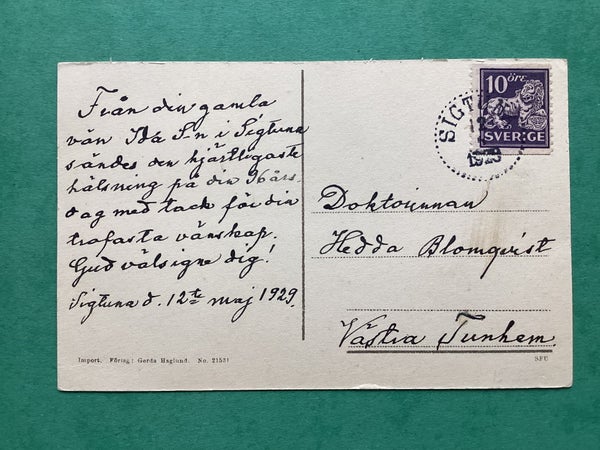 Från din gamla
vän Ida S-n i Sigtuna
sändes den hjärtligaste
hälsning på din
dag med tack för din
trofasta vänskap.
Gud välsigne dig!
Sigtuna d. 12te maj 1929.
10 ÖRE
SVERIGE
SIGTUNA
1929
Doktorinnan
Hedda Blomqvist
Västra Tunhem.
Import. Förlag: Gerda Haglund. No. 21531
SFU